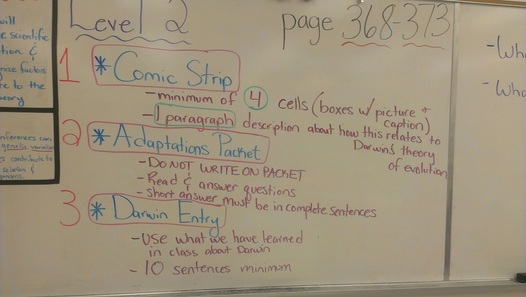 will
e scientific
tion &
factors
re to the
eory
nferences can
genetic variation
s contribute to
Level 2
page 368-373
1 * Comic Strip
- minimum of 4 cells (boxes w/ picture + caption)
- 1 paragraph description about how this relates to
Darwin's theory
of evolution
2 * Adaptations Packet
- DO NOT WRITE ON PACKET
- Read & answer questions
- Short answer must be in complete sentences
3 * Darwin Entry
- Use what we have learned
in class about Darwin
- 10 sentences minimum
- Wh
- Wha